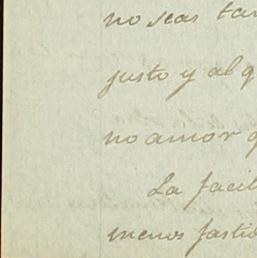 no seas tan
justo y al q
no amor q
La facil
menos fasti